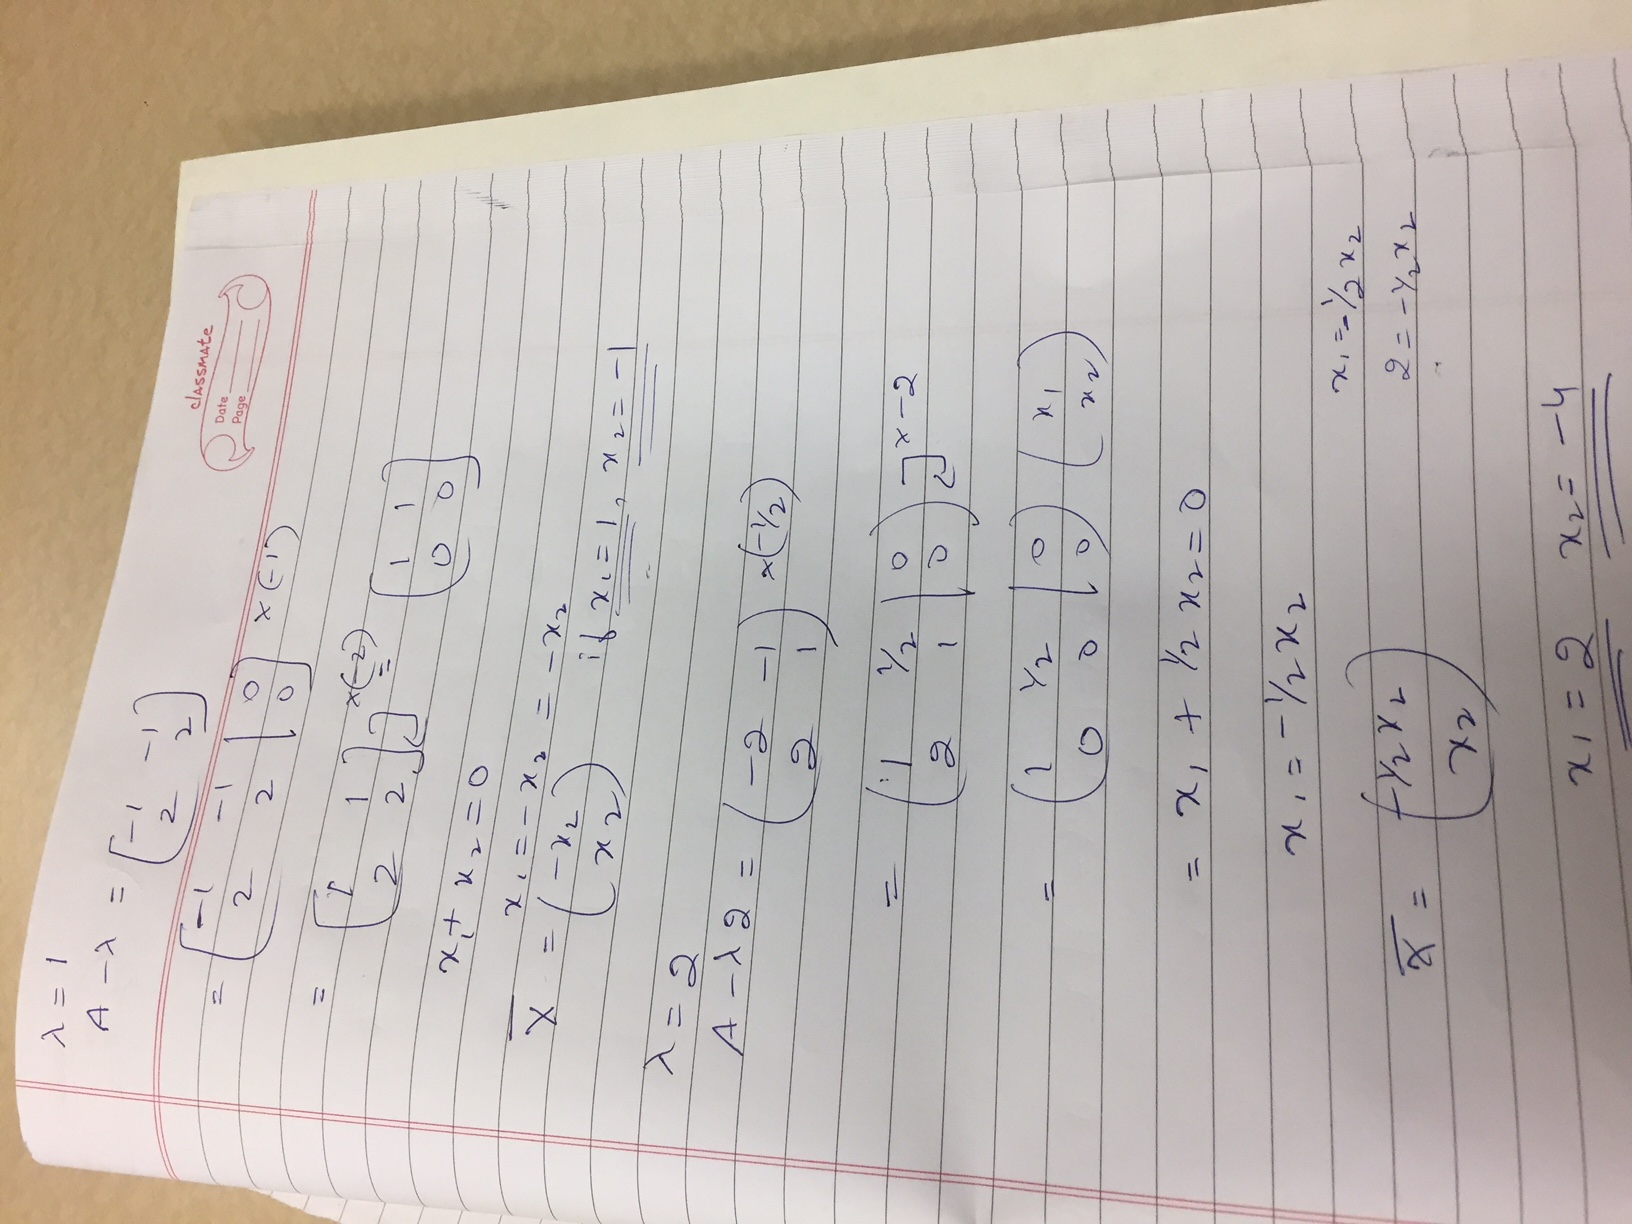 λ = 1
A - λ = [-1 -1
2 2]
= [-1 -1 | 0
2 2 | 0] ×(-1)
classmate
Date
Page
= [1 1
2 2] ×(-2) = [1 1
0 0]
x₁ + x₂ = 0
x₁ = -x₂ = -x₂
X̄ = (-x₂
x₂) if x₁ = 1, x₂ = -1
λ = 2
A - λ2 = (-2 -1
2 1) ×(-1/2)
= (1 1/2 | 0
2 1 | 0) × -2
= (1 1/2 | 0
0 0 | 0) (x₁
x₂)
= x₁ + 1/2 x₂ = 0
x₁ = -1/2 x₂
x₁ = -1/2 x₂
2 = -1/2 x₂
X̄ = (-1/2 x₂
x₂)
x₁ = 2 x₂ = -4